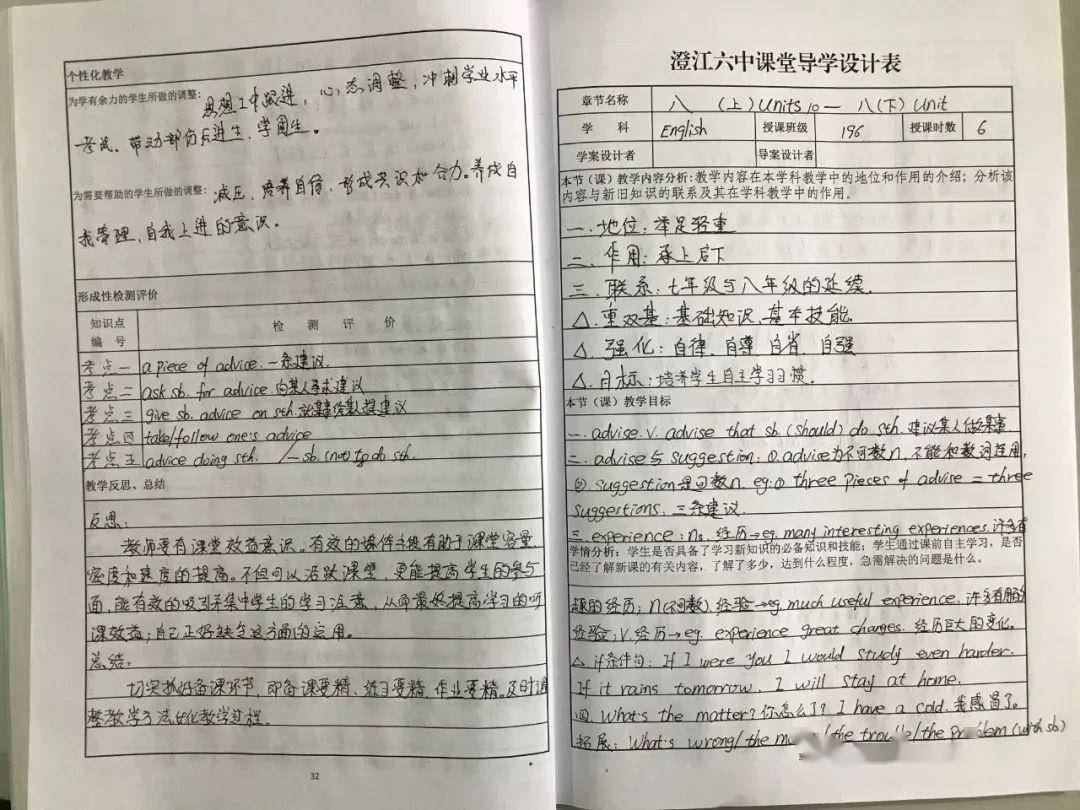 个性化教学
为学有余力的学生所做的调整：思想工作跟进，心态调整，冲刺学业水平
考试。带动部份后进生，学困生。
为需要帮助的学生所做的调整：减压，培养自信，形成共识和合力。养成自
我管理，自我上进的意识。
形成性检测评价
知识点编号 检测评价
考点一 a piece of advice. 一条建议.
考点二 ask sb. for advice. 向某人寻求建议
考点三 give sb. advice on sth. 就某事给某人提建议
考点四 take/follow one's advice
考点五 advice doing sth. /— sb. (not) to do sth.
教学反思、总结
反思：
教师要有课堂效益意识。有效的课件手段有助于课堂容量、
密度和速度的提高。不但可以活跃课堂，更能提高学生的参与
面，能有效的吸引并集中学生的学习注意，从而最终提高学习的听
课效益；自己正好缺乏这方面的运用。
总结：
切实抓好备课环节，即备课要精、练习要精、作业要精。及时调
整教学方法，优化教学过程。
32
澄江六中课堂导学设计表
章节名称 八（上）Units 10 — 八（下）Unit
学 科 English 授课班级 196 授课时数 6
学案设计者 导案设计者
本节（课）教学内容分析：教学内容在本学科教学中的地位和作用的介绍；分析该
内容与新旧知识的联系及其在学科教学中的作用。
一. 地位：举足轻重
二. 作用：承上启下
三. 联系：七年级与八年级的延续.
△. 重双基：基础知识、基本技能.
△. 强化：自律、自尊 自省 自强
△. 目标：培养学生自主学习习惯.
本节（课）教学目标
一. advise. v. advise that sb. (should) do sth. 建议某人做某事.
二. advise与suggestion: ①. advise为不可数n, 不能和数词连用,
②. suggestion是可数n. eg:① three pieces of advise = three
suggestions. 三条建议.
三. experience: ns. 经历→eg. many interesting experiences. 许多有
学情分析：学生是否具备了学习新知识的必备知识和技能；学生通过课前自主学习，是否
已经了解新课的有关内容，了解了多少，达到什么程度，急需解决的问题是什么。
趣的经历；n(不可数). 经验→eg. much useful experience. 许多有用的
经验；v. 经历→eg. experience great changes. 经历巨大的变化.
△. 许条件句: If I were you I would study even harder.
If it rains tomorrow, I will stay at home.
四. What's the matter? 你怎么了? I have a cold. 我感冒了.
拓展: What's wrong/ the /the trouble/the problem (with sb)